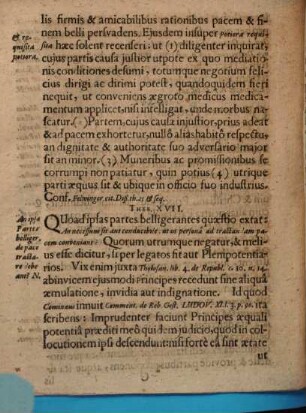 lis firmis & amicabilibus rationibus pacem & fi-
nem belli persvadens. Ejusdem insuper potiora requi-
& re-
quisita
potiora.
sita hæc solent recenseri: ut (1) diligenter inquirat,
cujus partis causa justior utpote ex quo mediatio-
nis conditiones desumi, totumque negotium feli-
cius dirigi ac dirimi potest, quandoquidem fieri
nequit, ut conveniens ægroto medicus medica-
mentum applicet, nisi intelligat, unde morbus na-
scatur. (2) Partem, cujus causa injustior, prius adeat
& ad pacem exhortetur, nullô aliàs habitô respectu,
an dignitate & authoritate suo adversario major
sit an minor. (3) Muneribus ac promissionibus se
corrumpi non patiatur, quin potius (4) utrique
parti æquus sit & ubique in officio suo industrius.
Conf. cit. Diss. th. & seq.
Thes. XVII.
An ipsæ
Partes
belliger.
de pace
tractare
debeant N.
QUoad ipsas partes belligerantes quæstio extat:
An necessum sit aut conducibile, ut personâ ad tractandam pacem conveniant:
Quorum utrumque negatur, & meli-
us esse dicitur, si per legatos fiat aut Plenipotentia-
rios. Vix enim juxta Tholosan. lib. 4. de Republ. c. n.
ab invicem ejusmodi Principes recedunt sine aliqua
æmulatione, invidia aut indignatione. Id quod
innuit Comminæ. de Reb. Gest. LUDOV. XI. ita
scribens: Imprudenter faciunt Principes æqua-
li potentiâ præditi meô quidem judicio, quod in col-
locutionem ipsi descendunt nisi fortè ea sint ætate
C
ut